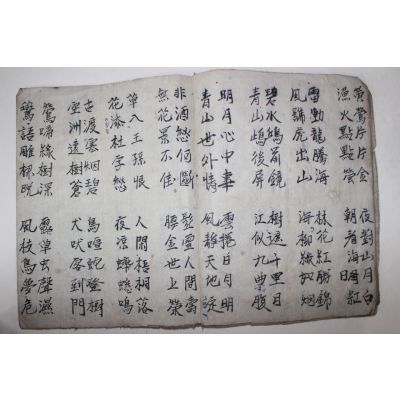 黃鶯片片金 夜對山月白
漁火點點螢 朝看海日紅
雷動龍騰海 林花紅勝錦
風號虎出山 海柳綠如烟
碧水鷗前鏡 樹遮千里目
青山鷗後屏 江似九曲腹
明月心中事 雲捲日月明
青山世外情 風靜天地定
非酒愁何斷 人間壽
無花景不佳 腰金世上榮
草入王孫恨 人閒梧桐落
花添杜宇愁 夜深鳴
古渡雲烟碧 鳥喧蛇登樹
空洲遠樹蒼 犬吠客到門
鶯啼綠樹深 露草虫聲濕
語雕樑晚 風枝鳥夢危